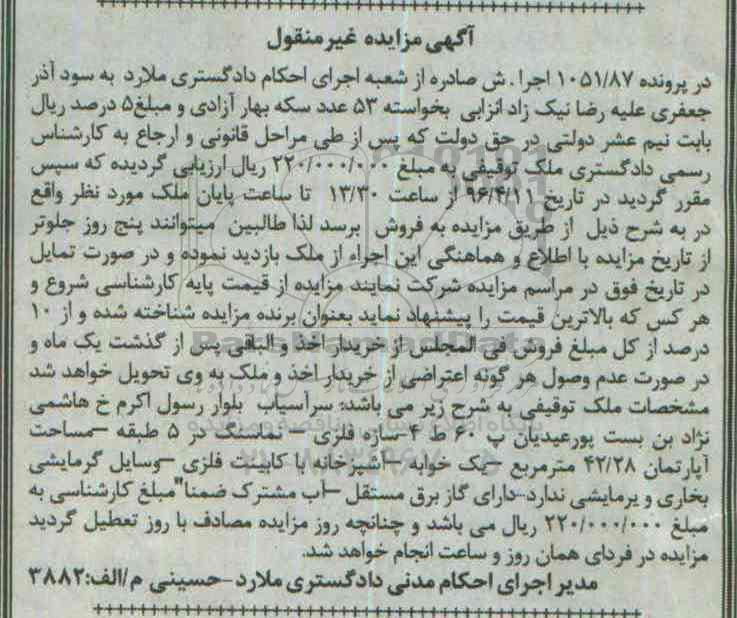 آگهی مزایده غیر منقول
در پرونده ۱۰۵۱/۸۷ اجرا . ش صادره از شعبه اجرای احکام دادگستری ملارد به سود آذر
جعفری علیه رضا نیک زاد انزابی بخواسته ۵۳ عدد سکه بهار آزادی و مبلغ۵ درصد ریال
بابت نیم عشر دولتی در حق دولت که پس از طی مراحل قانونی و ارجاع به کارشناس
رسمی دادگستری ملک توقیفی به مبلغ ۲۲۰/۰۰۰/۰۰۰ ریال ارزیابی گردیده که سپس
مقرر گردید در تاریخ ۹۶/۴/۱۱ از ساعت ۱۳/۳۰ تا ساعت پایان ملک مورد نظر واقع
در به شرح ذیل از طریق مزایده به فروش برسد لذا طالبین میتوانند پنج روز جلوتر
از تاریخ مزایده با اطلاع و هماهنگی این اجراء از ملک بازدید نموده و در صورت تمایل
در تاریخ فوق در مراسم مزایده شرکت نمایند مزایده از قیمت پایه کارشناسی شروع و
هر کس که بالاترین قیمت را پیشنهاد نماید بعنوان برنده مزایده شناخته شده و از ۱۰
درصد از کل مبلغ فروش فی المجلس از خریدار اخذ و البقی پس از گذشت یک ماه و
در صورت عدم وصول هر گونه اعتراضی از خریدار اخذ و ملک به وی تحویل خواهد شد
مشخصات ملک توقیفی به شرح زیر می باشد: سرآسیاب بلوار رسول اکرم خ هاشمی
نژاد بن بست پورعیدیان پ ۶۰ ط ۴-سازه فلزی – نماسنگ در ۵ طبقه –مساحت
آپارتمان ۴۲/۲۸ مترمربع –یک خوابه –آشپزخانه با کابینت فلزی –وسایل گرمایشی
بخاری و یرمایشی ندارد-دارای گاز برق مستقل –آب مشترک ضمنا"مبلغ کارشناسی به
مبلغ ۲۲۰/۰۰۰/۰۰۰ ریال می باشد و چنانچه روز مزایده مصادف با روز تعطیل گردید
مزایده در فردای همان روز و ساعت انجام خواهد شد.
مدیر اجرای احکام مدنی دادگستری ملارد-حسینی م/الف:۳۸۸۲
ParsNamadData